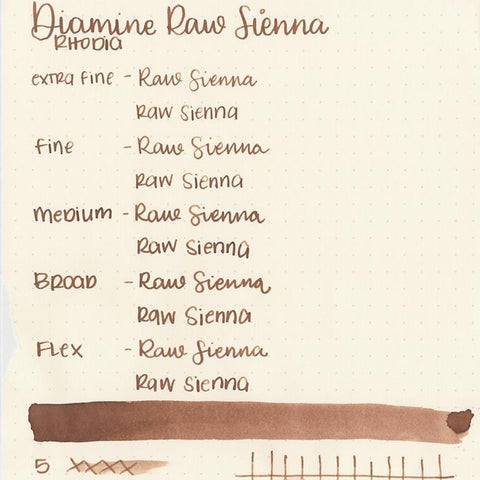 Diamine Raw Sienna
RHODIA
extra fine - Raw Sienna
Raw Sienna
Fine - Raw Sienna
Raw Sienna
Medium - Raw Sienna
Raw Sienna
Broad - Raw Sienna
Raw Sienna
Flex - Raw Sienna
Raw Sienna
5 xxxx